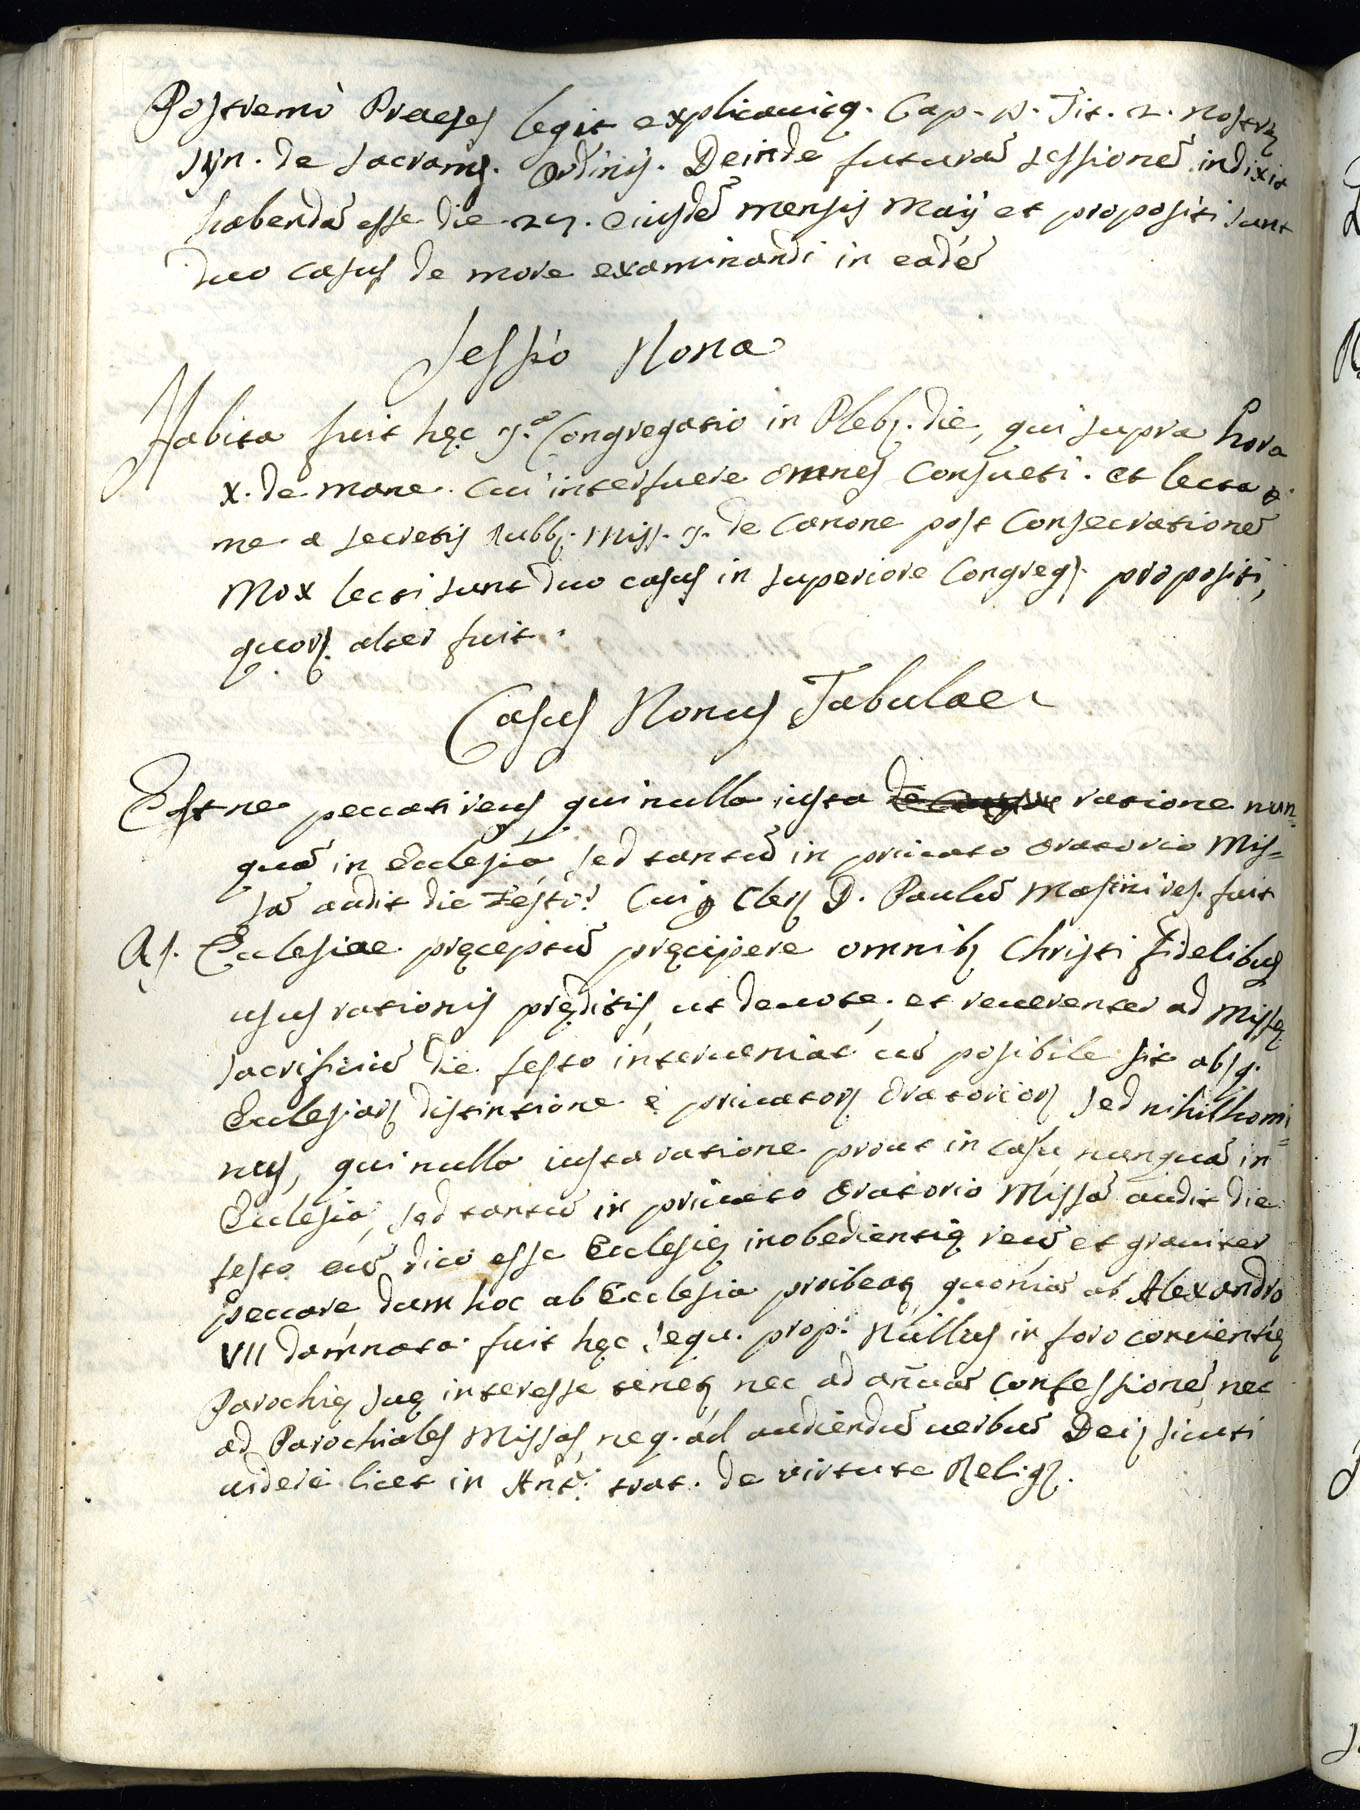 Postremò Praeses legit explicauitq. Cap. p. Tit. 2. nostrę
syn. de sacram. Ordinis. Deinde futurā sessionē indixit
habendā esse die 27. eiusdē mensis Maij et propositi sunt
duo casus de more examinandi in eadē
Sessio Nona
Habita fuit hęc 9.a Congregatio in Pleb. die, qui supra hora
x. de mane. Cui interfuere omnes Consueti. et lecta
ne a secretis Rubb. Miss. 9. de Canone post Consecrationē
Mox lecti sunt duo casus in superiore Congreg. propositi,
quor. alter fuit.
Casus Nonus Tabulae
Est ne peccati reus qui nulla iusta ratione nun=
quā in Ecclesia, sed tantū in priuato oratorio Mis=
sā audit die Festo? Cui Cler. D. Paulus Masini res. fuit
As. Ecclesiae pręceptū pręcipere omnib. Christi fidelibus
usus rationis pręditis, ut deuote, et reuerenter ad Missę
sacrificiū die festo interueniāt cū posibile sit absq.
Ecclesiar. distintione è priuator. Oratorior. sed nihilhomi=
nus, qui nulla iusta ratione prout in casu, nunquā in
Ecclesia, sed tantū in priuato Oratorio Missā audit die
festo eū dico esse Ecclesię inobedientię reū et grauiter
peccare, dum hoc ab Ecclesia proibeat. quoniā ab Alexandro
VII damnata fuit hęc sequ. prop. Nullus in foro concientię
Parochię suę interesse tenet. nec ad anuā Confessionē, nec
ad Parochiales Missas, neq. ad audiendū uerbū Dei, sicuti
uidere licet in Ant. trat. de virtute Relig.